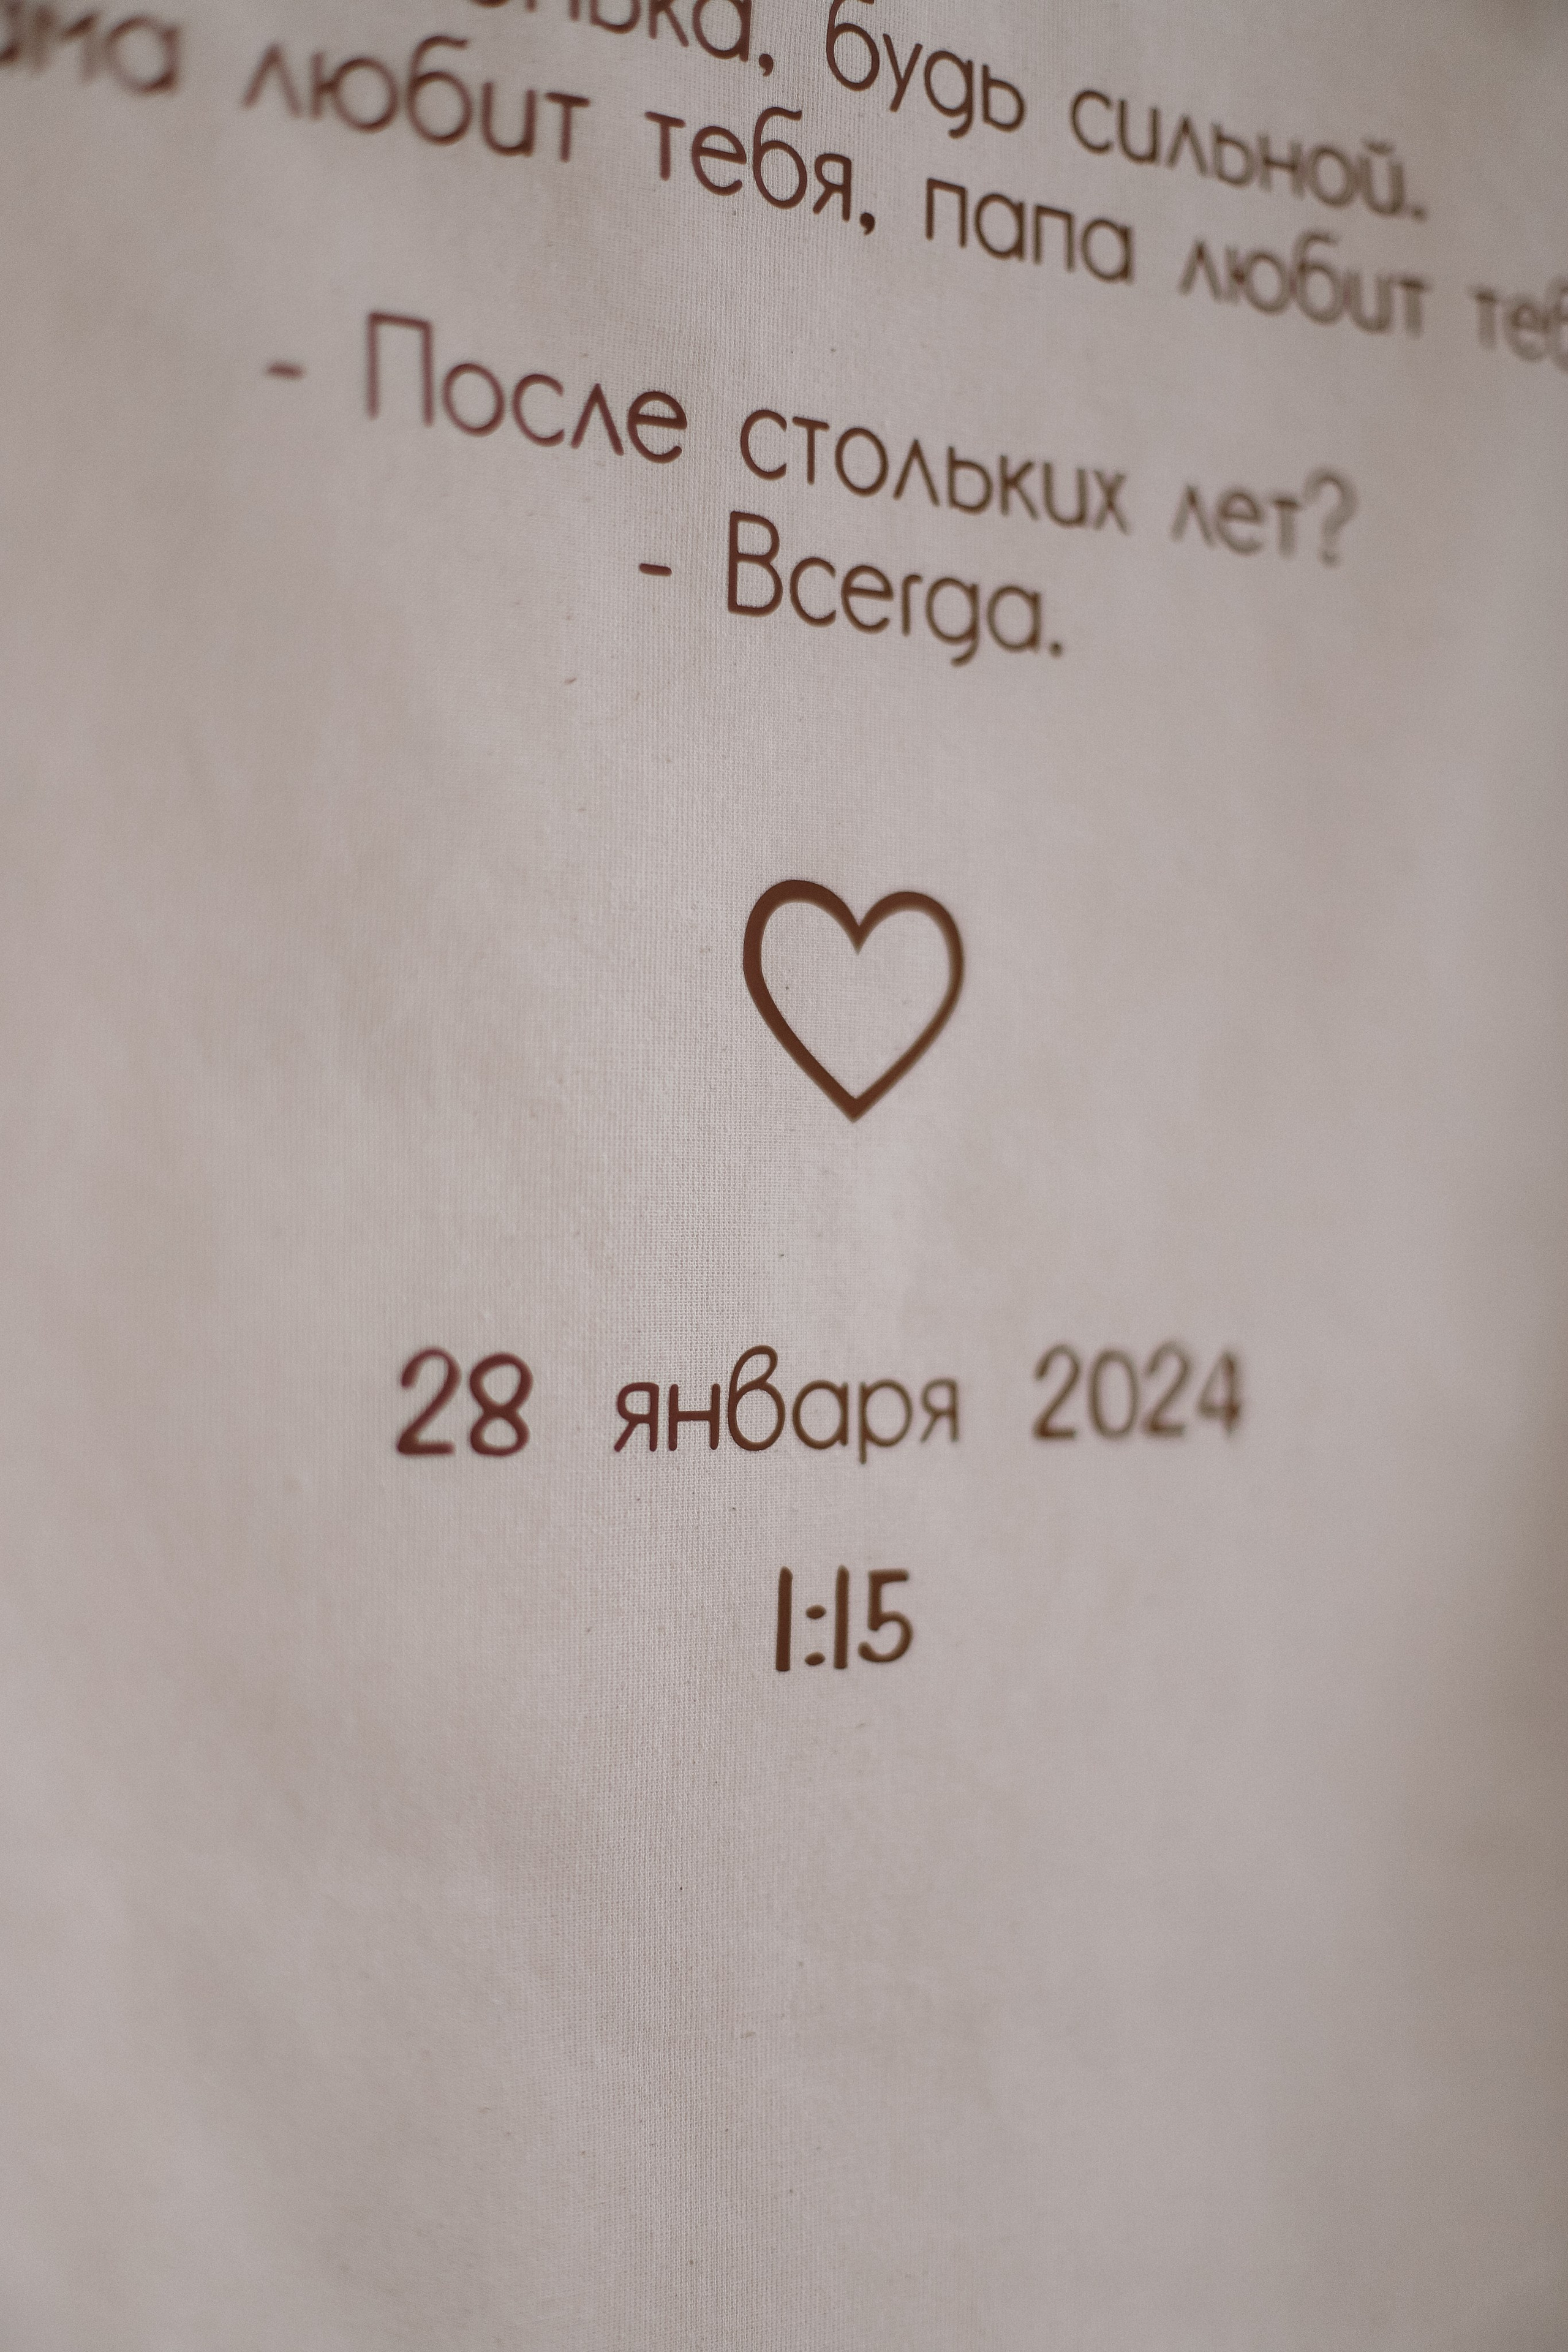 будь сильной.
любит тебя, папа любит
- После стольких лет?
- Всегда.
28 января 2024
1:15